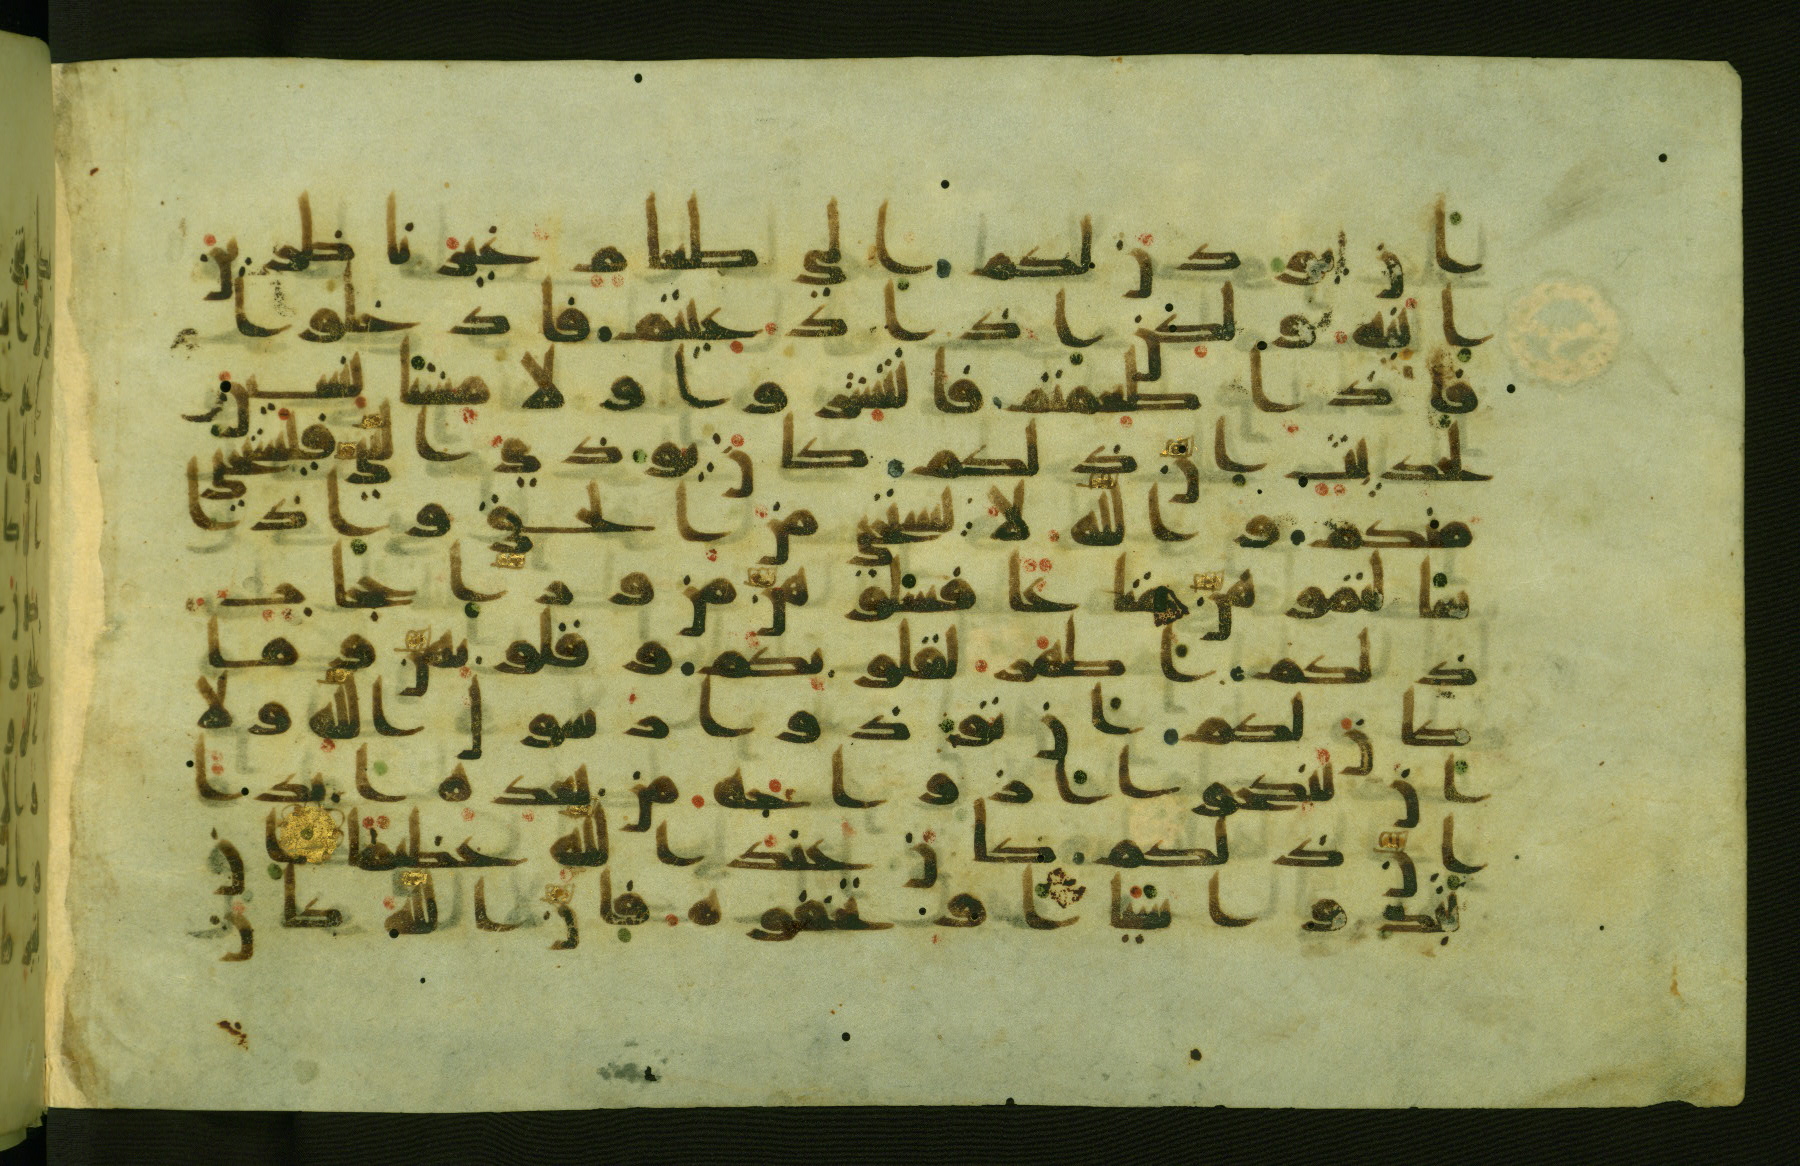 ان يوذن لكم الى طعام غير ناظرين
انيه ولكن اذا دعيتم فادخلوا
فاذا طعمتم فانتشروا ولا مستانسين
لحديث ان ذلكم كان يوذي النبي فيستحي
منكم والله لا يستحي من الحق واذا
سالتموهن متاعا فسلوهن من ورا حجاب
ذلكم اطهر لقلوبكم وقلوبهن وما
كان لكم ان توذوا رسول الله ولا
ان تنكحوا ازواجه من بعده ابدا
ان ذلكم كان عند الله عظيما ان
تبدوا شيا او تخفوه فان الله كان